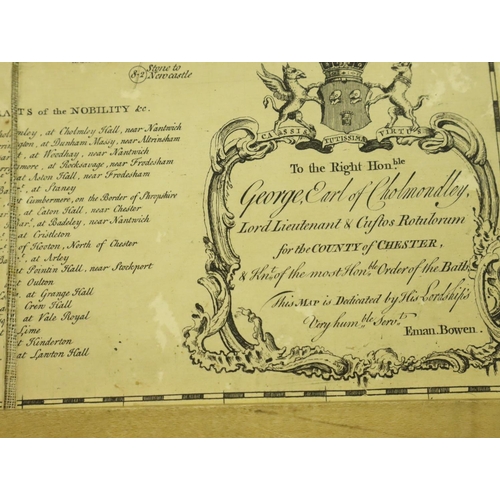 8-2
Stone to
Newcastle
of the NOBILITY &c.
at Cholmley Hall, near Nantwich
at Dunham Massy, near Altrinsham
at Woodhay, near Nantwich
at Rocksavage, near Frodesham
at Aston Hall, near Frodesham
at Staney
Cumbermere, on the Border of Shropshire
at Eaton Hall, near Chester
at Badeley, near Nantwich
at Cristleton
of Hooton, North of Chester
at Arley
at Pointin Hall, near Stockport
at Oulton
at Grange Hall
Crew Hall
at Vale Royal
Lime
at Kinderton
at Lawton Hall
CASSIS TUTISSIMA VIRTUS
To the Right Hon.ble
George, Earl of Cholmondley,
Lord Lieutenant & Custos Rotulorum
for the COUNTY of CHESTER,
& Knt. of the most Hon.ble Order of the Bath.
This MAP is Dedicated by His Lordship's
Very humble Servt.
Eman. Bowen.